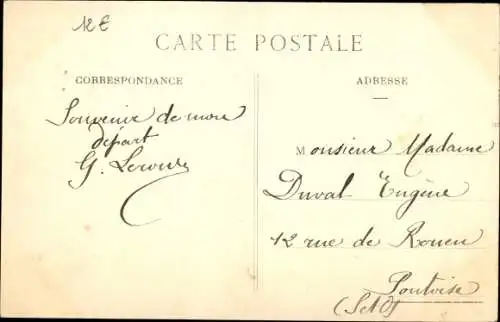 12€
CARTE POSTALE
CORRESPONDANCE
Souvenir de mon
départ
G.
ADRESSE
Monsieur Madame
Duval Eugène
12 rue de Rouen
Pontoise
(S et O)